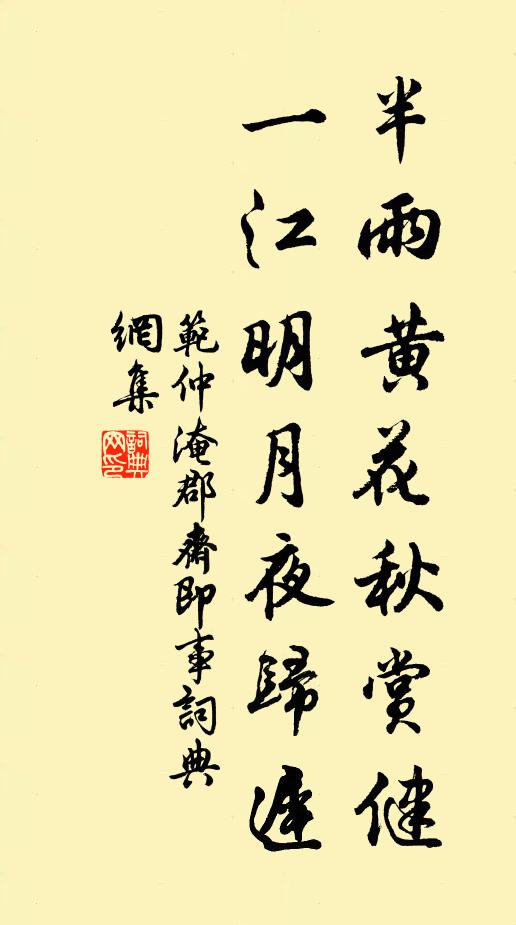 半雨黃花秋賞健
一江明月夜歸遲
範仲淹郡齋即事詞典
網集
詞典網印